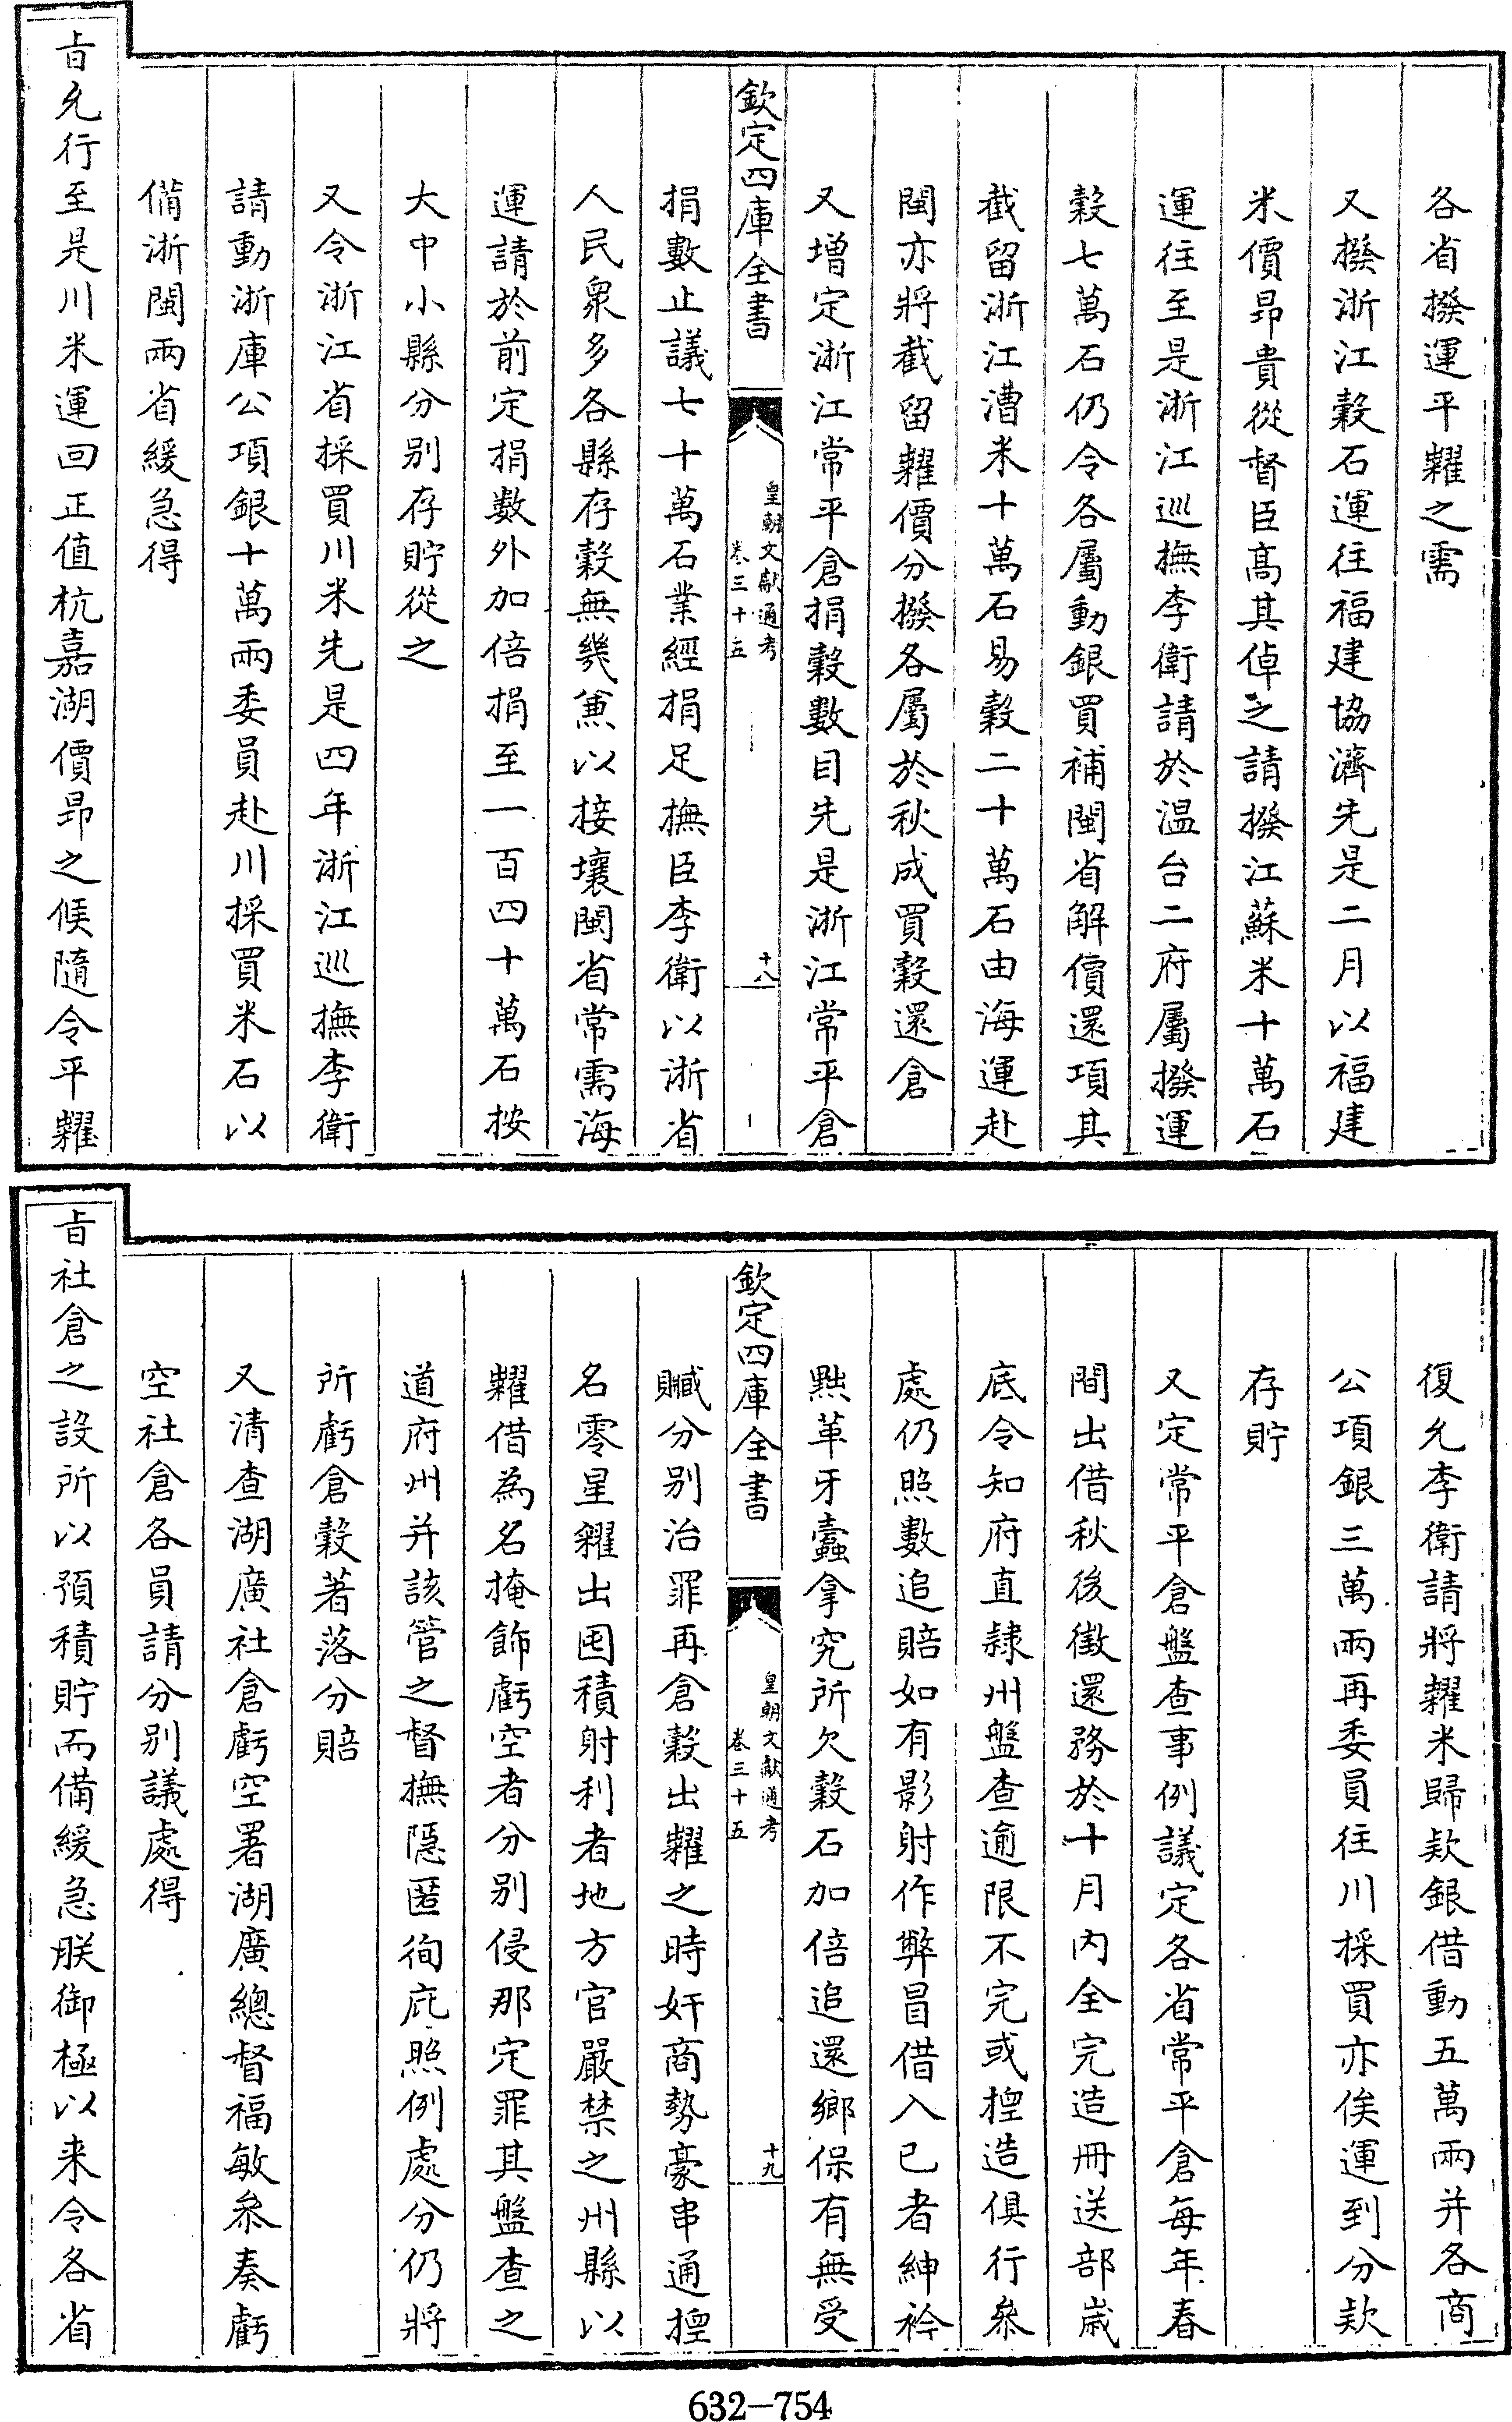 各省撥運平糶之需
又撥浙江穀石運往福建協濟先是二月以福建
米價昻貴從督臣髙其倬之請撥江蘇米十萬石
運往至是浙江巡撫李衛請於温台二府屬撥運
穀七萬石仍令各屬動銀買補閩省解價還項其
截留浙江漕米十萬石易穀二十萬石由海運赴
閩亦將截留糶價分撥各屬於秋成買穀還倉
又增定浙江常平倉捐穀數目先是浙江常平倉
欽定四庫全書
皇朝文獻通考
卷三十五
十八
捐數止議七十萬石業經捐足撫臣李衛以浙省
人民衆多各縣存穀無幾兼以接壤閩省常需海
運請於前定捐數外加倍捐至一百四十萬石按
大中小縣分别存貯從之
又令浙江省採買川米先是四年浙江巡撫李衛
請動浙庫公項銀十萬兩委員赴川採買米石以
備浙閩兩省緩急得
㫖允行至是川米運回正值杭嘉湖價昻之候隨令平糶
復允李衛請將糶米歸欵銀借動五萬兩并各商
公項銀三萬兩再委員往川採買亦俟運到分欵
存貯
又定常平倉盤查事例議定各省常平倉每年春
間出借秋後徵還務於十月内全完造冊送部歲
底令知府直隷州盤查逾限不完或揑造俱行參
處仍照數追賠如有影射作弊冒借入已者紳衿
黜革牙蠹拿究所欠穀石加倍追還鄉保有無受
欽定四庫全書
皇朝文獻通考
卷三十五
十九
贓分别治罪再倉穀出糶之時奸商勢豪串通揑
名零星糴出囤積射利者地方官嚴禁之州縣以
糶借為名掩飾虧空者分别侵那定罪其盤查之
道府州并該管之督撫隠匿徇庇照例處分仍將
所虧倉穀著落分賠
又清查湖廣社倉虧空署湖廣總督福敏叅奏虧
空社倉各員請分别議處得
㫖社倉之設所以預積貯而備緩急朕御極以来令各省
632—754